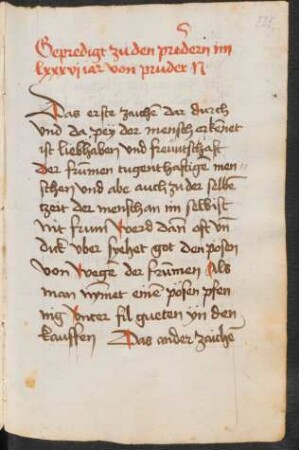 Gepredigt zu den predern im
lxxxvi iar von pruder N
Das erste zaichē dar durch
vnd da peÿ der mensch erkenet
ist liebhaben vnd freuntschafft
der frūmen tugenthafftigē men
schen vnd abe auch zu der selbē
zeit der mensch an im selbst
nit frum werd dan̄ offt vn̄
dick vber sehet got den posen
von wegē der frūmen Als
man nymet einē pösen pfen
nig vnter fil gueten yn den
kauffen Das ander zaichē